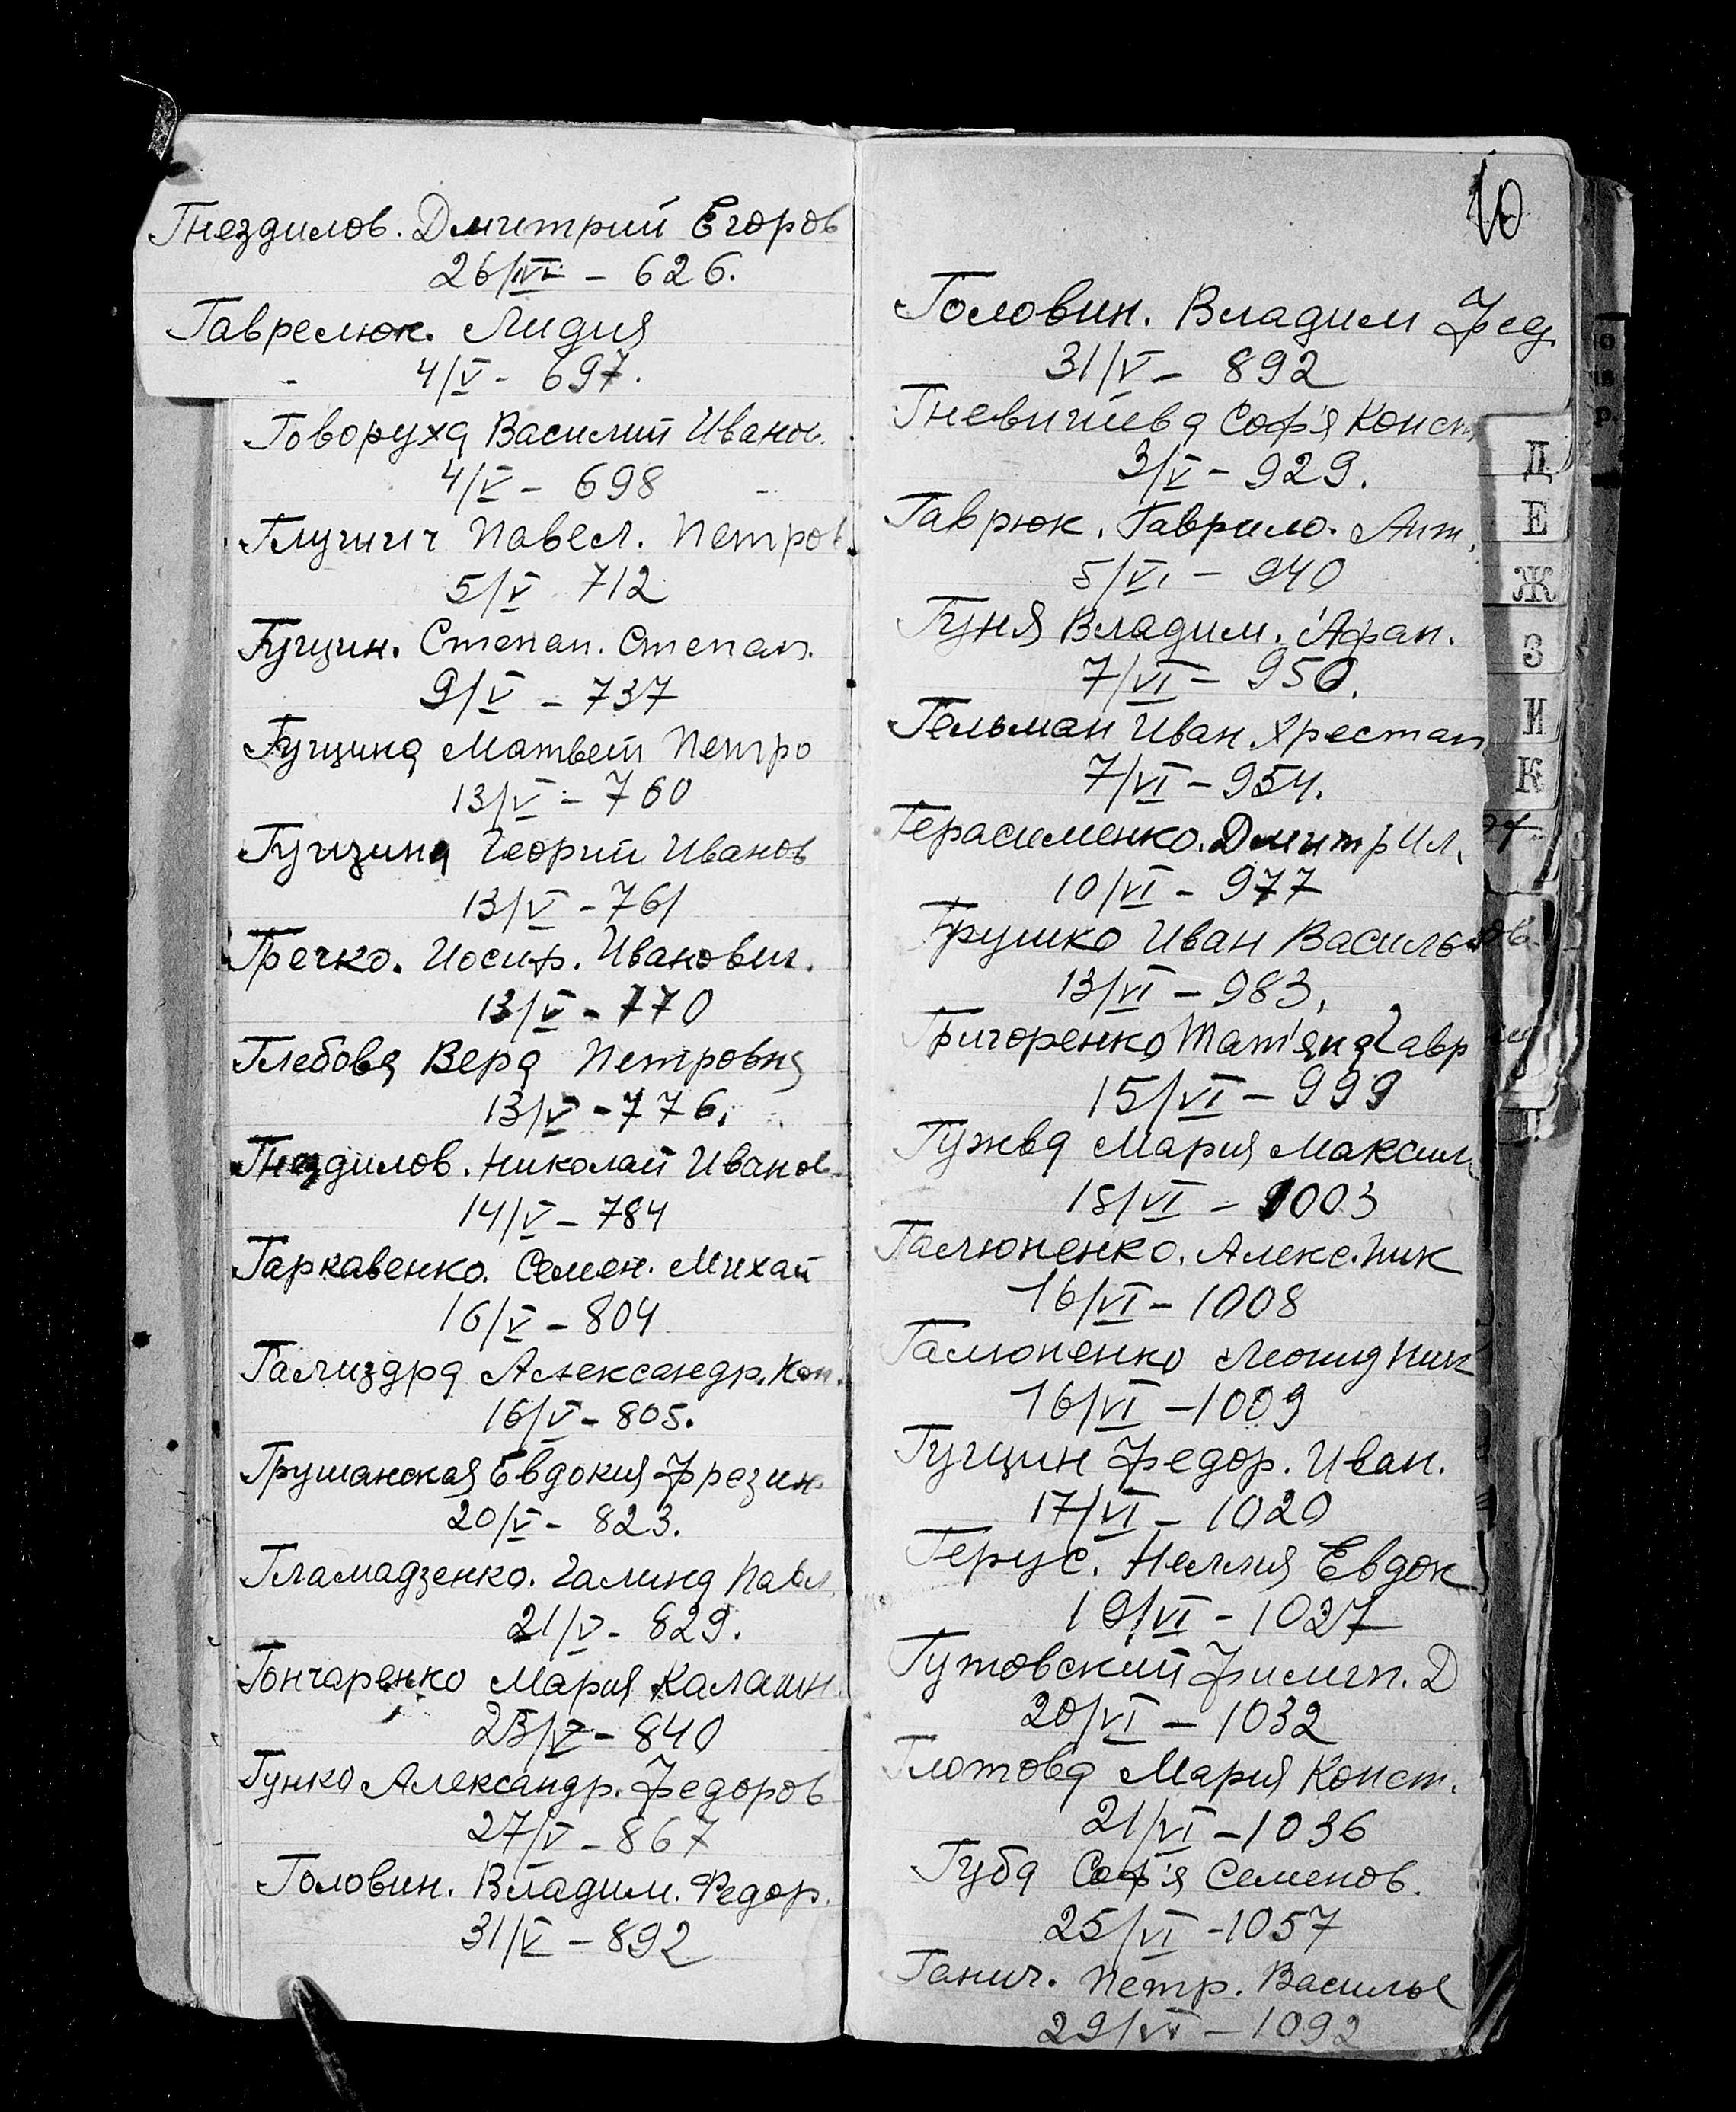 Гнездилов. Дмитрий Егоров
26/IV - 626.
Гаврелюк. Лидия
4/V - 697.
Говоруха Василий Иванов.
4/V - 698
Павел. Петров
5/V 712
Гущин. Степан. Степан.
9/V - 737
Гущина Матвей Петро
13/V - 760
Гущина Георгий Иванов
13/V - 761
Гречко. Иосиф. Иванович.
13/V - 770
Глебова Вера Петровна
13/V - 776.
Гнездилов. Николай Иванов
14/V - 784
Гаркавенко. Семен. Михай
16/V - 804
Гализдра Александр. Кон.
16/V - 805.
Грушанская Евдокия
20/V - 823.
Гламадзенко. Галина Павл.
21/V - 829.
Гончаренко Мария Калашн
23/V - 840
Гунко Александр. Федоров
27/V - 867
Головин. Владим. Федор.
31/V - 892
10
Головин. Владим Фед.
31/V - 892
Софʼя Конст
3/V - 929.
Гаврюк. Гаврило. Ант.
5/VI - 940
Гуня Владим. Афан.
7/VI - 950.
Гельман Иван Хрестан
7/VI - 954.
Герасименко. Дмитр Ил.
10/VI - 977
Грушко Иван Василь
13/VI - 983.
Григоренко Татʼяна Гавр
15/VI - 999
Гужва Мария Максим
18/VI - 1003
Галюненко. Алекс. Ник
16/VI - 1008
Галюненко Леонид Ник
16/VI - 1009
Гущин Федор. Иван.
17/VI - 1020
Герус. Неллия Евдок
19/VI - 1027
Гутовский Филип. Д
20/VI - 1032
Глотова Мария Конст.
21/VI - 1036
Губа Софʼя Семенов.
25/VI - 1057
Ганич. Петр. Василье
29/VI - 1092
Д
Е
Ж
З
И
К